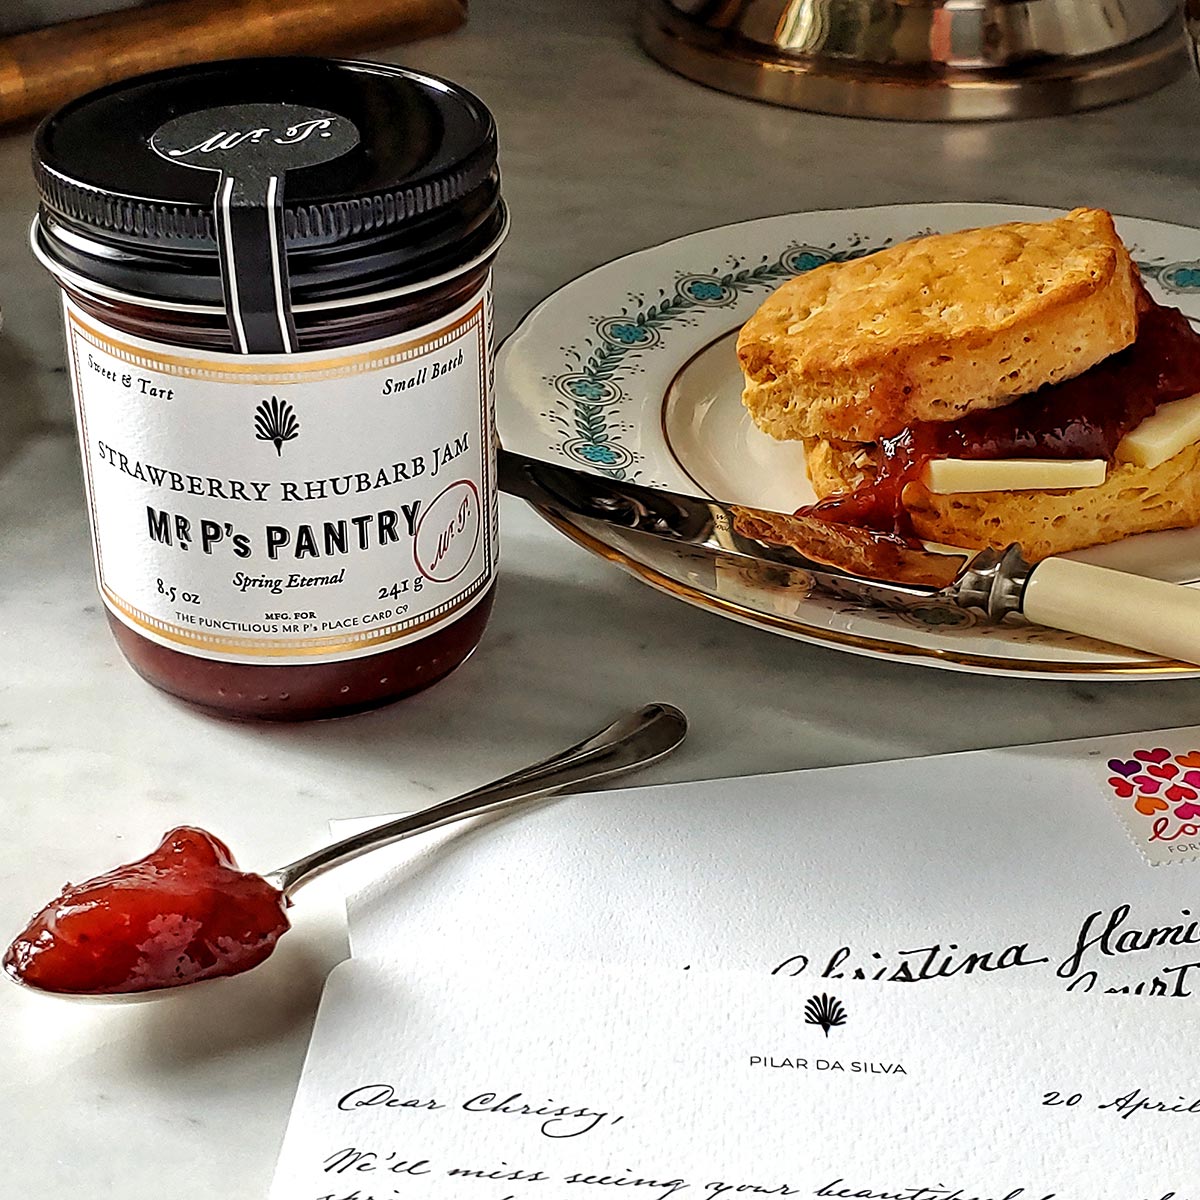 Mr. P.
Sweet & Tart
Small Batch
STRAWBERRY RHUBARB JAM
MR P's PANTRY
Mr. P.
Spring Eternal
8.5 oz
241 g
MFG. FOR
THE PUNCTILIOUS MR P's PLACE CARD Cº
Christina
PILAR DA SILVA
20 April
Dear Chrissy,
We'll miss seeing your beautiful